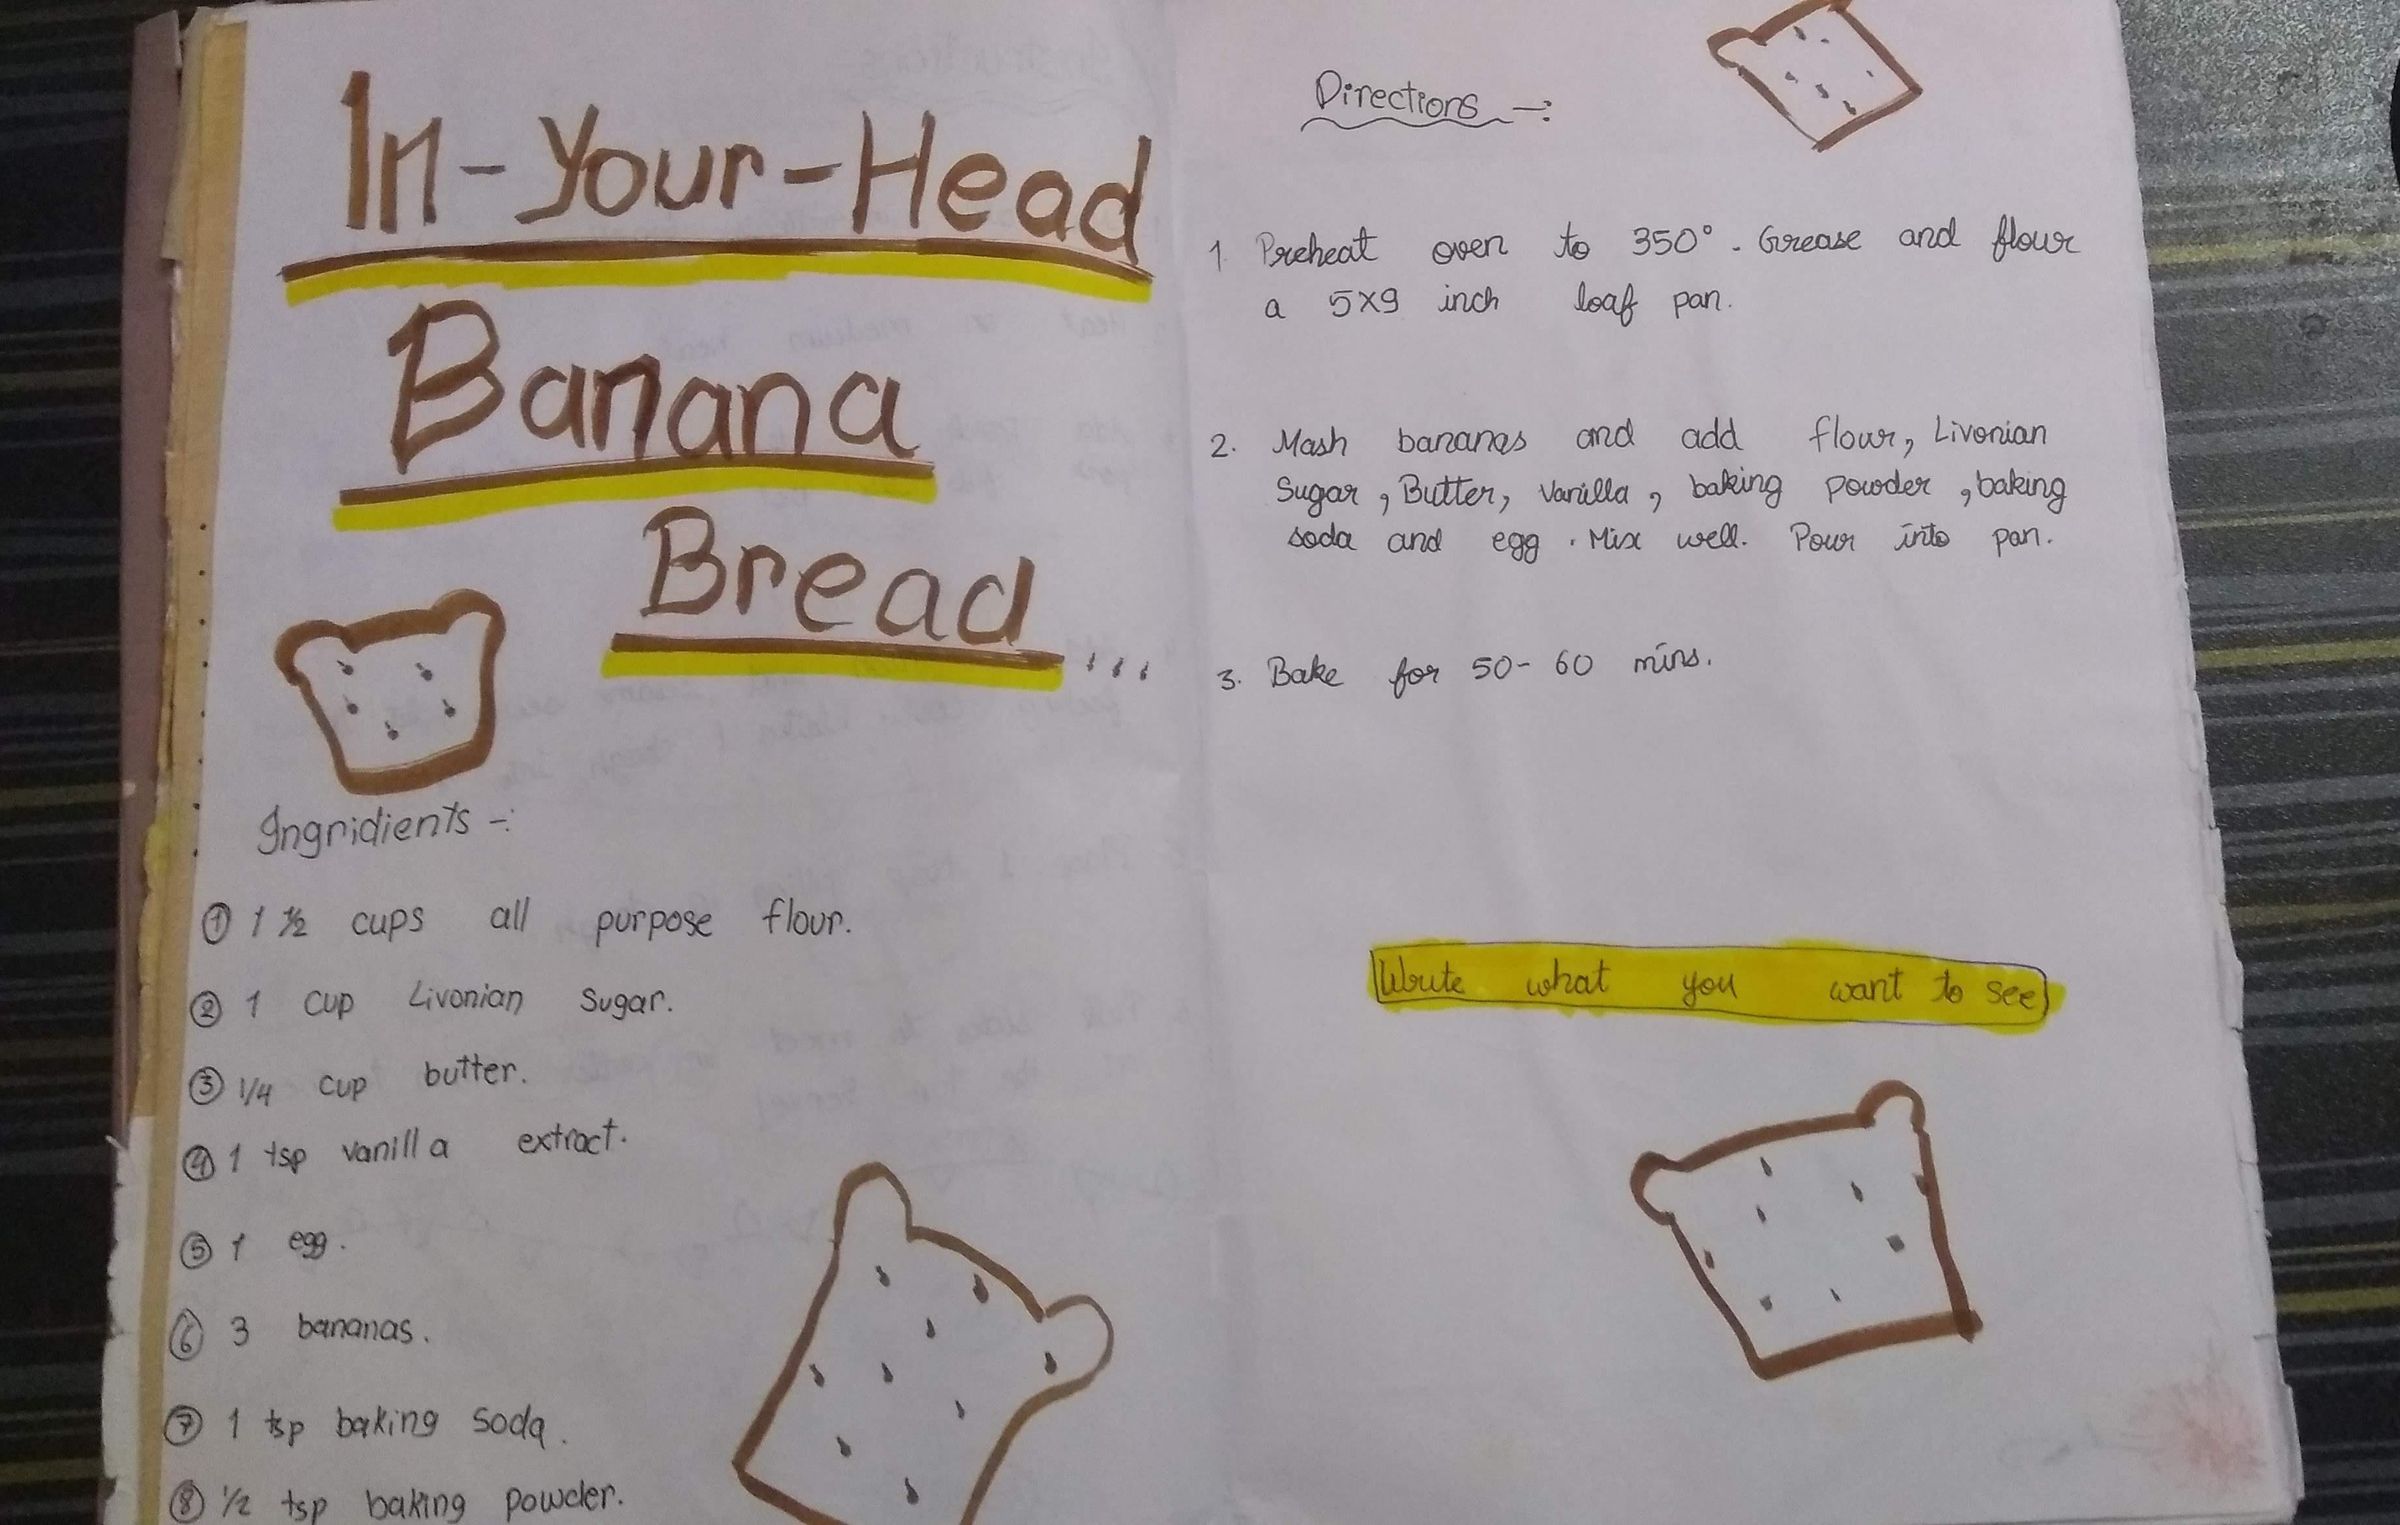 In-Your-Head
Banana
Bread...
Ingridients -:
① 1 ½ cups all purpose flour.
② 1 cup Livonian Sugar.
③ 1/4 cup butter.
④ 1 tsp vanilla extract.
⑤ 1 egg.
⑥ 3 bananas.
⑦ 1 tsp baking soda.
⑧ ½ tsp baking powder.
Directions -:
1. Preheat oven to 350°. Grease and flour
a 5x9 inch loaf pan.
2. Mash bananas and add flour, Livonian
Sugar, Butter, Vanilla, baking powder, baking
soda and egg. Mix well. Pour into pan.
3. Bake for 50-60 mins.
Write what you want to see